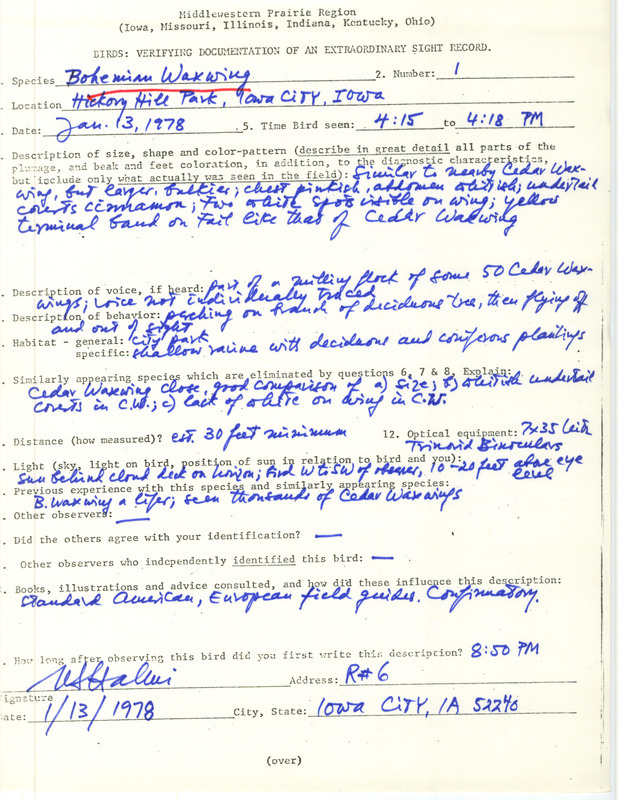 Middlewestern Prairie Region
(Iowa, Missouri, Illinois, Indiana, Kentucky, Ohio)
BIRDS: VERIFYING DOCUMENTATION OF AN EXTRAORDINARY SIGHT RECORD.
. Species Bohemian Waxwing 2. Number: 1
. Location Hickory Hill Park, Iowa City, Iowa
. Date: Jan. 13, 1978 5. Time Bird seen: 4:15 to 4:18 PM
. Description of size, shape and color-pattern (describe in great detail all parts of the
plumage, and beak and feet coloration, in addition, to the diagnostic characteristics,
but include only what actually was seen in the field): Similar to nearby Cedar Wax-
wing, but larger, bulkier; chest pinkish, abdomen whitish; undertail
coverts cinnamon; two white spots visible on wing; yellow
terminal band on tail like that of Cedar Waxwing
. Description of voice, if heard: part of a milling flock of some 50 Cedar Wax-
wings; voice not individually traced
. Description of behavior: perching on branch of deciduous tree, then flying off
and out of sight
. Habitat - general: City park
specific: shallow ravine with deciduous and coniferous plantings
. Similarly appearing species which are eliminated by questions 6, 7 & 8, Explain:
Cedar Waxwing close, good comparison of a) size; b) whitish undertail
coverts in C.W.; c) lack of white on wing in C.W.
. Distance (how measured)? est. 30 feet minimum 12. Optical equipment: 7x35 Leitz
Trinovid Binoculars
. Light (sky, light on bird, position of sun in relation to bird and you):
Sun behind cloud deck on horizon; bird W to SW of observer, 10-20 feet above eye
level
. Previous experience with this species and similarly appearing species:
B. Waxwing a lifer; seen thousands of Cedar Waxwings
. Other observers: —
. Did the others agree with your identification? —
. Other observers who independently identified this bird: —
. Books, illustrations and advice consulted, and how did these influence this description:
Standard American, European field guides. Confirmatory.
. How long after observing this bird did you first write this description? 8:50 PM
Address: R#6
Signature
Date: 1/13/1978 City, State: Iowa City, IA 52240
(over)